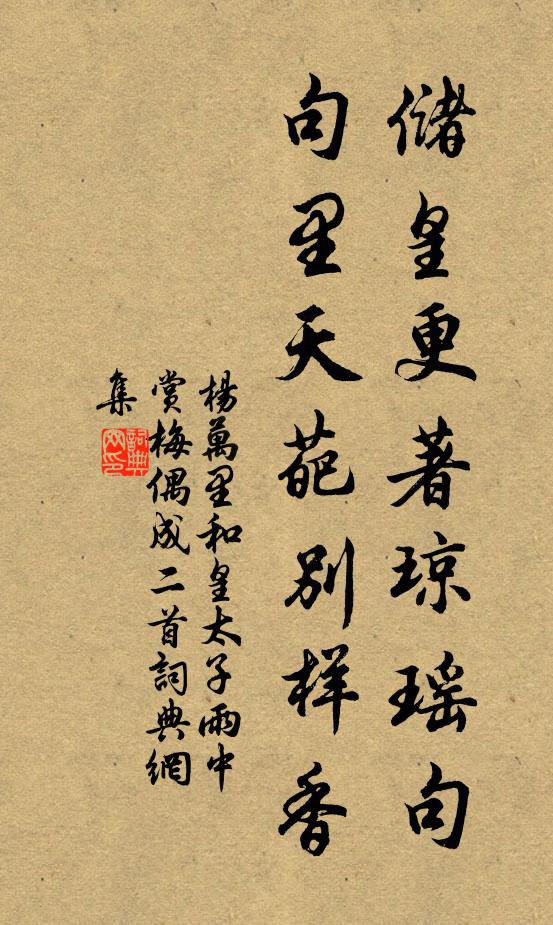 儲皇更著琼瑶句
句里天葩别样香
楊萬里和皇太子雨中
賞梅偶成二首詞典網
集
詞典
网印